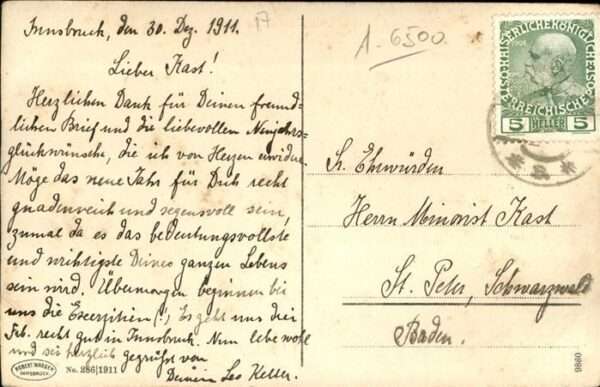 Innsbruck, den 30. Dez. 1911.
17
Lieber Kast!
Herzlichen Dank für Deinen freund-
lichen Brief und die liebevollen Neujahrs-
glückwünsche, die ich von Herzen erwidere.
Möge das neue Jahr für Dich recht
gnadenreich und segensvoll sein,
zumal da es das bedeutungsvollste
und wichtigste Deines ganzen Lebens
sein wird. Übermorgen beginnen bei
uns die Exerzitien (!) Es geht uns drei
Frb. recht gut in Innsbruck. Nun lebe wohl
und sei herzlich gegrüßt von
Deinem Leo Keller.
ROBERT WARGER
INNSBRUCK
No. 286|1911
1.6500.
KAISERLICHE KÖNIGLICHE
1908
ÖSTERREICHISCHE
5 HELLER 5
Sr. Ehrwürden
Herrn Minorist Kast
St. Peter, Schwarzwald
Baden.
9860